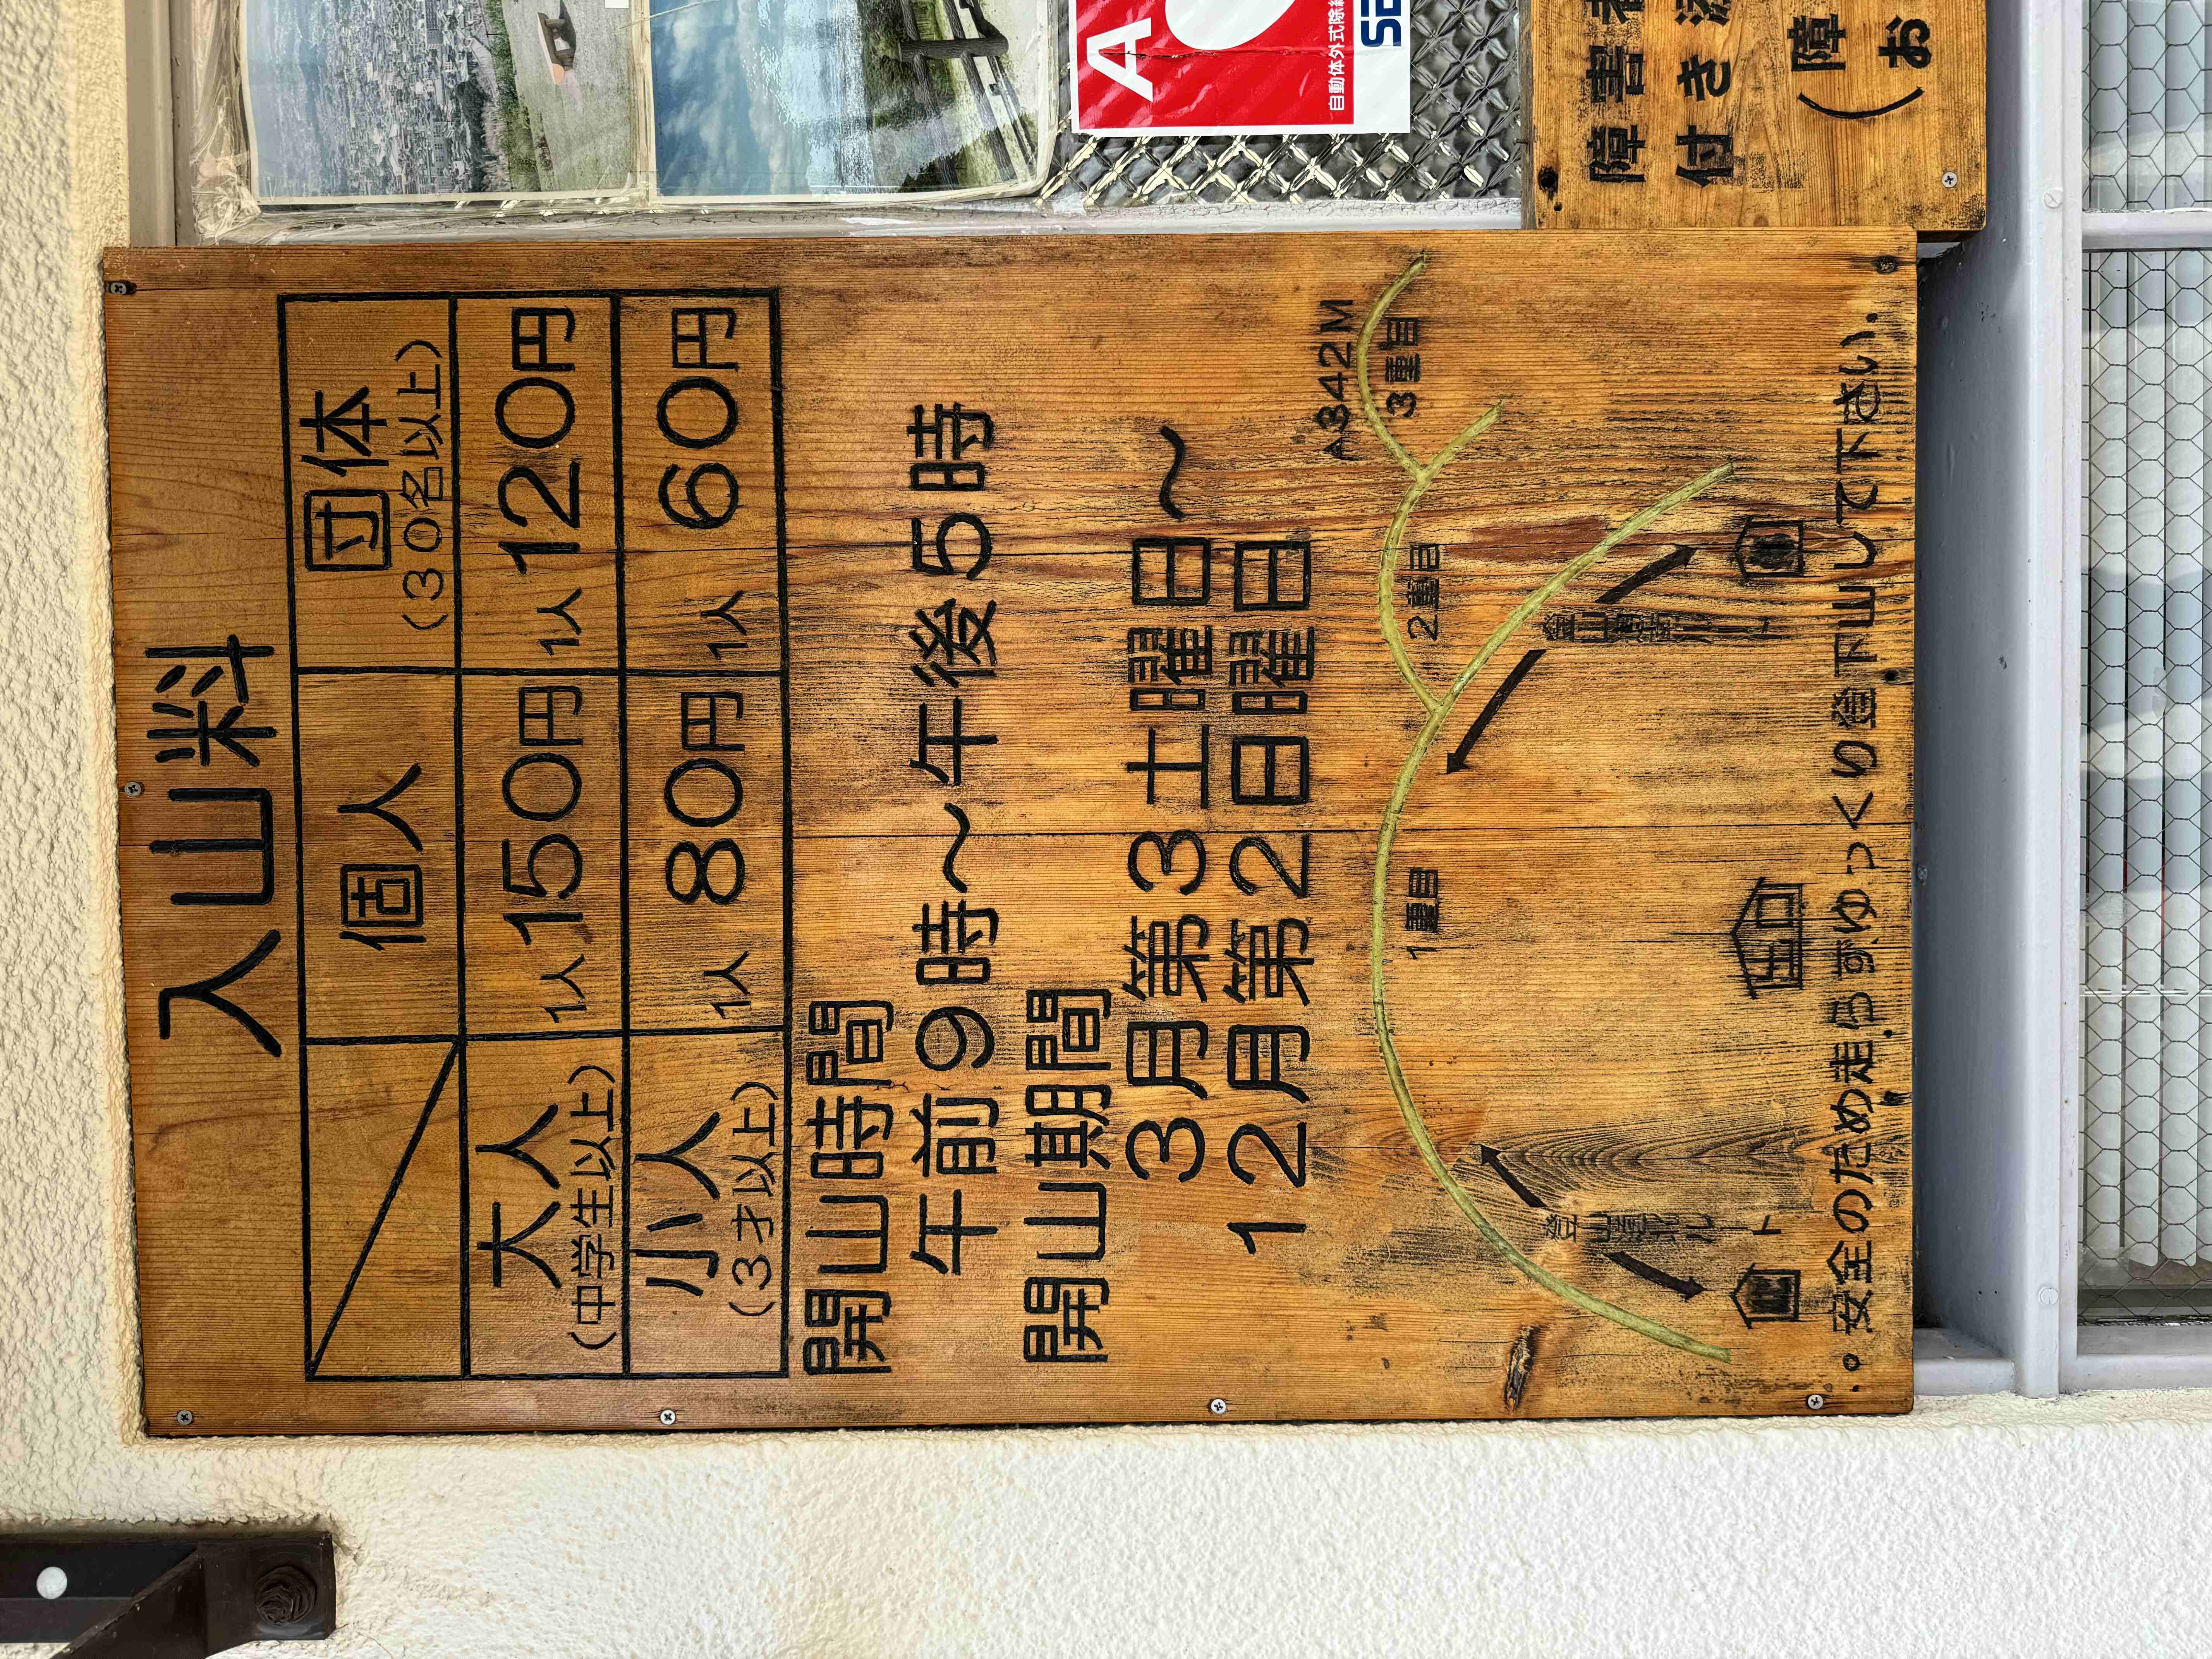 入山料
個人
団体
(30名以上)
大人
(中学生以上)
1人 150円
1人 120円
小人
(3才以上)
1人 80円
1人 60円
開山時間
午前9時～午後5時
開山期間
3月第3土曜日～
12月第2日曜日
342M
1重目
2重目
3重目
登山道
ルート
登山道
出口
・安全のため走らずゆっくり登下山して下さい.
A
自動体外式除細
障害者
付き添
(障
お